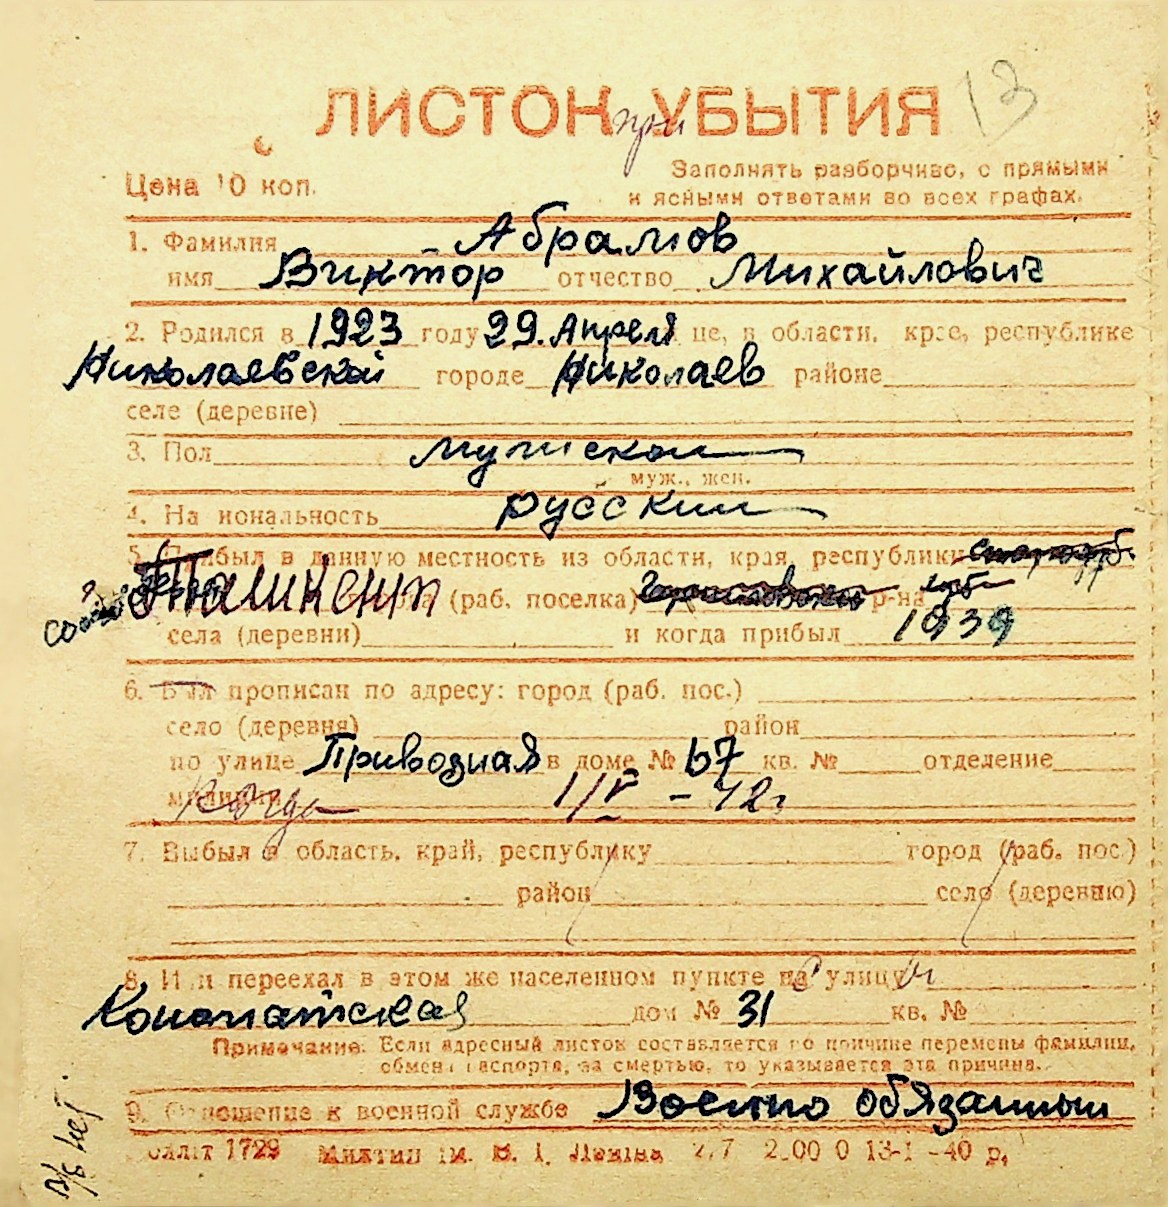 ЛИСТОК при УБЫТИЯ 13
Цена 10 коп.
Заполнять разборчиво, с прямыми
и ясными ответами во всех графах.
1. Фамилия Абрамов
имя Виктор отчество Михайлович
2. Родился в 1923 году 29. Апреля це, в области, крае, республике
Николаевской городе Николаев районе
селе (деревне)
3. Пол мужской
муж., жен.
4. Национальность русский
5. Прибыл в данную местность из области, края, республики
Ташкент города (раб. поселка) р-на
села (деревни) и когда прибыл 1939
6. Был прописан по адресу: город (раб. пос.)
село (деревня) район
по улице Приводная в доме № 67 кв. № отделение
милиции Когда 1/V - 42г
7. Выбыл в область, край, республику город (раб. пос.)
район село (деревню)
8. Или переехал в этом же населенном пункте на улицу
Конопатская дом № 31 кв. №
Примечание: Если адресный листок составляется по причине перемены фамилии,
обмена паспорта, за смертью, то указывается эта причина.
9. Отношение к военной службе Военно обязанный
1729 им. В. І. Леніна 2.7 13-1 -40 р.